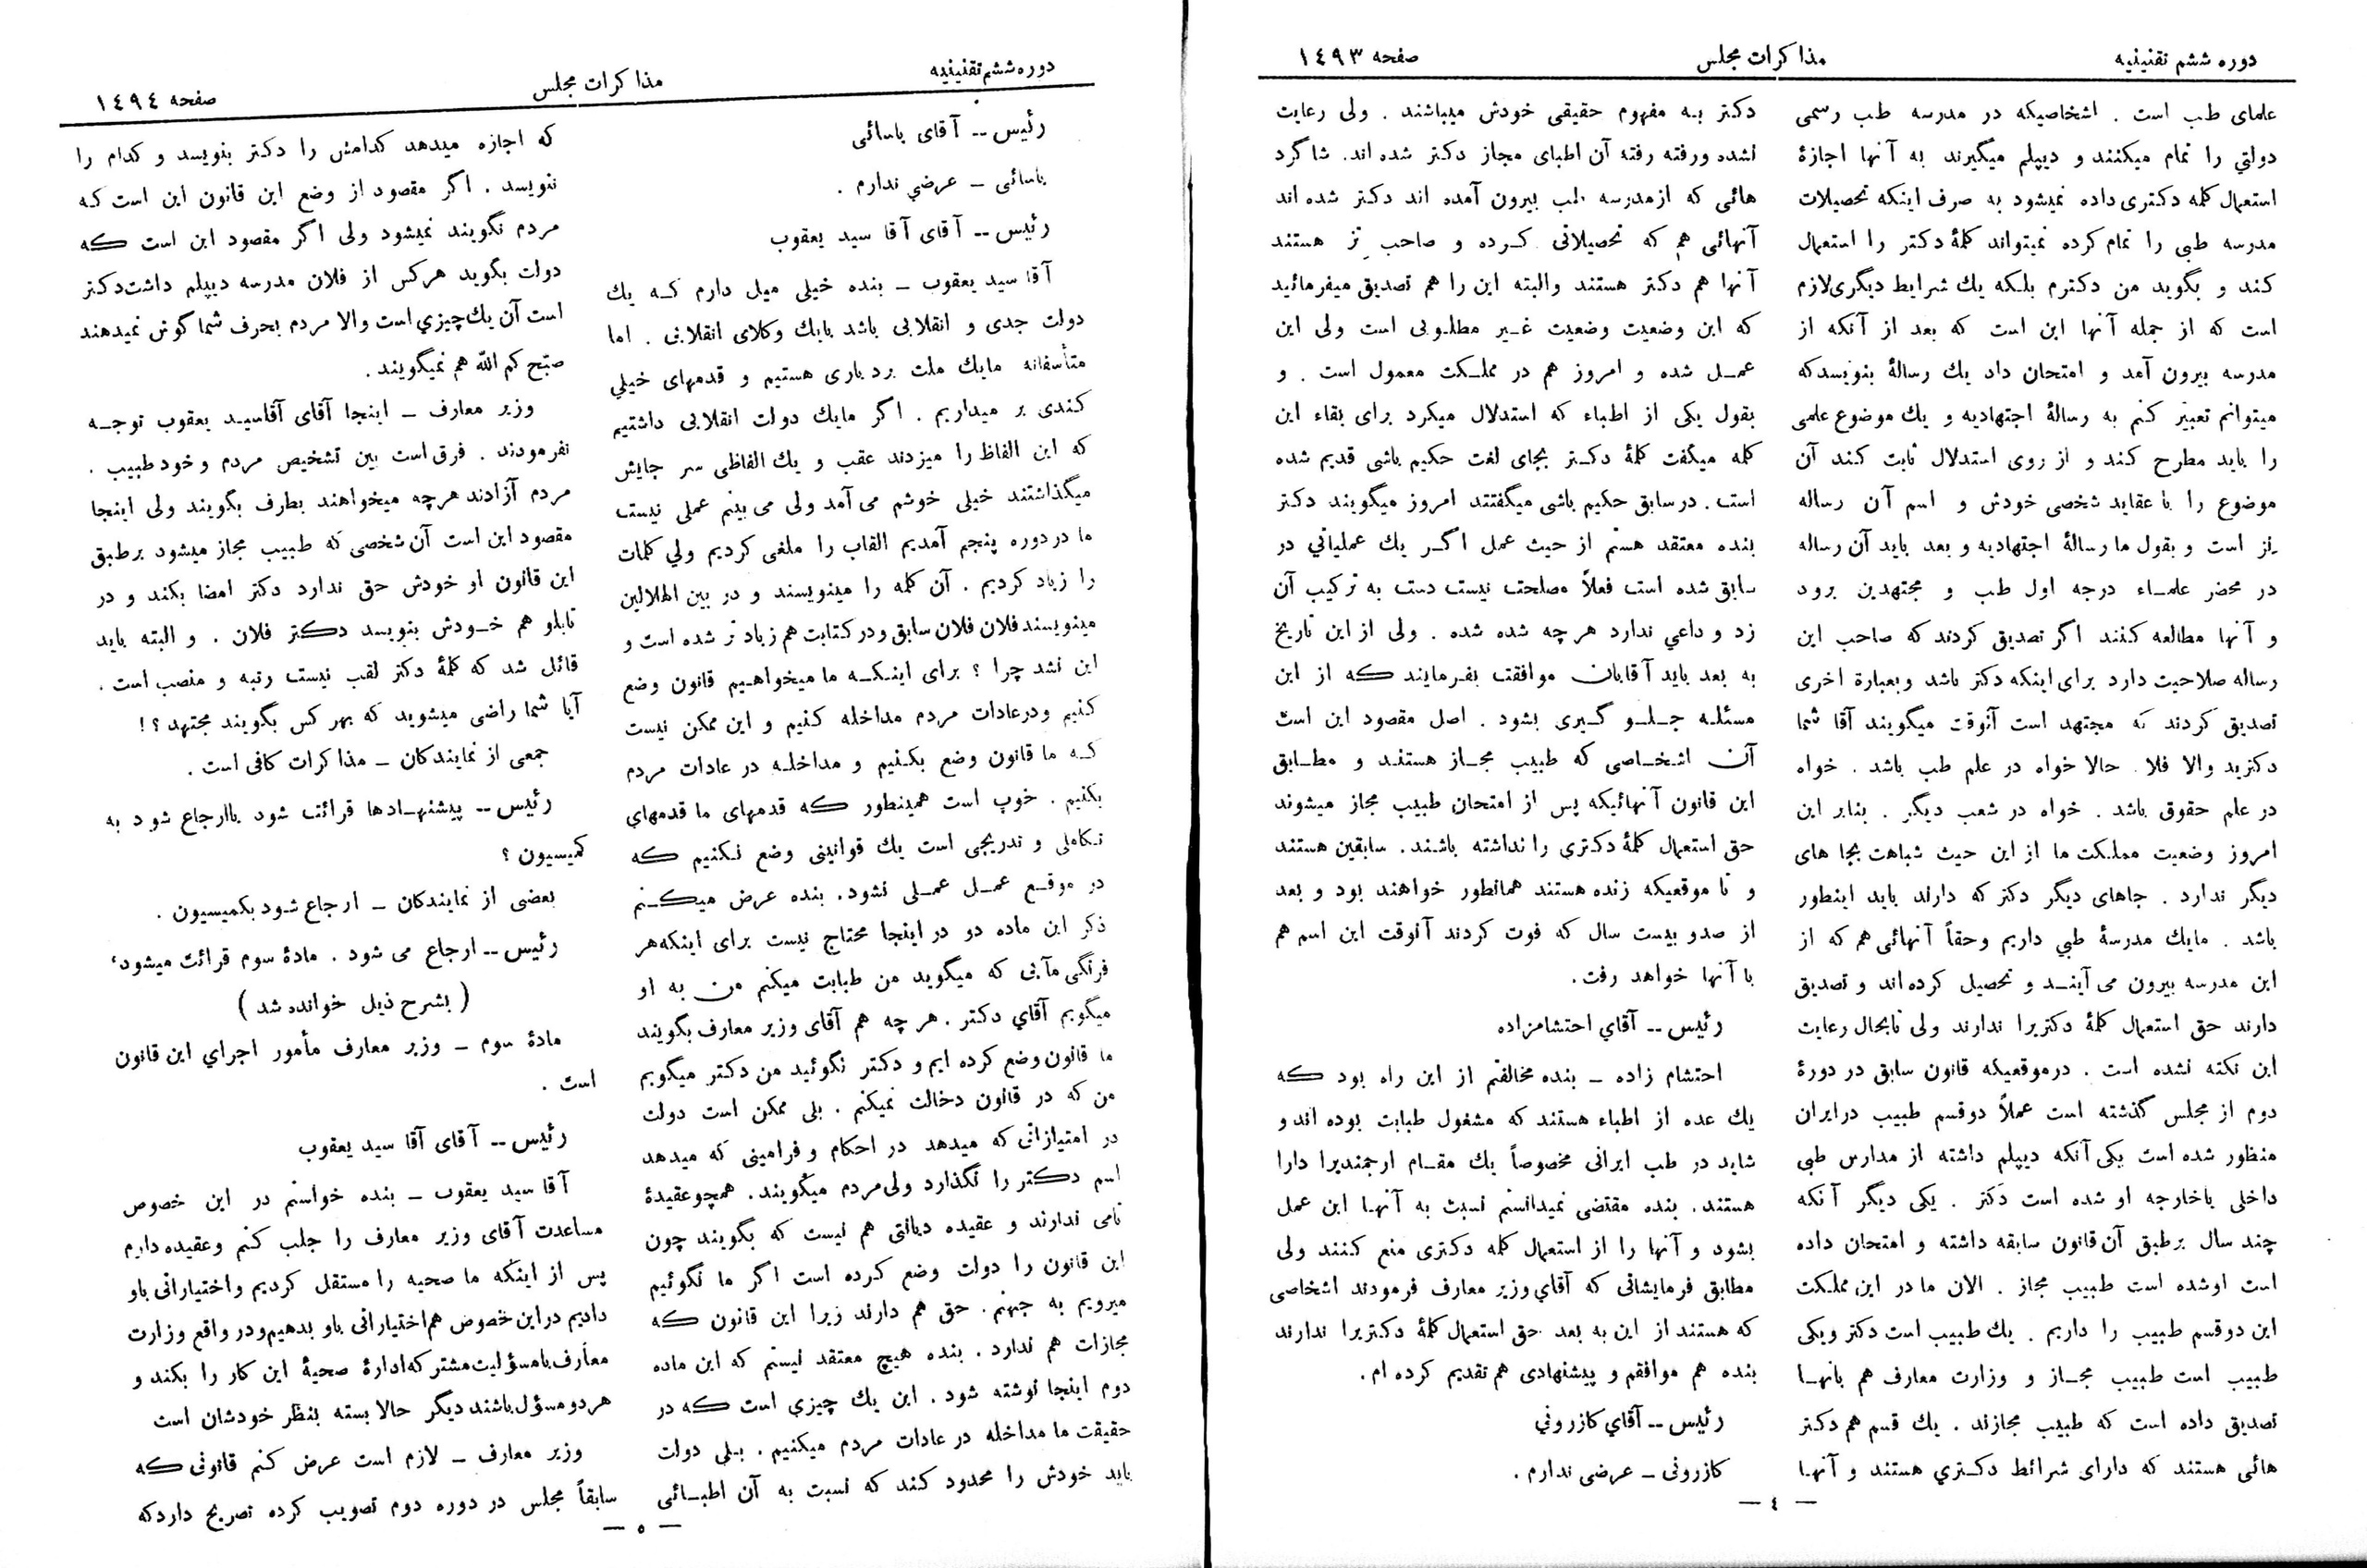 دوره ششم تقنینیه
مذاکرات مجلس
صفحه ۱٤۹۳
علمای طب است . اشخاصیکه در مدرسه طب رسمی
دولتي را تمام میکنند و دیپلم میگیرند به آنها اجازهٔ
استعمال کلمه دکتری داده نمیشود به صرف اینکه تحصیلات
مدرسه طبی را تمام کرده نمیتواند کلمهٔ دکتر را استعمال
کند و بگوید من دکترم بلکه یك شرایط دیگری لازم
است که از جمله آنها این است که بعد از آنکه از
مدرسه بیرون آمد و امتحان داد یك رسالهٔ بنویسد که
میتوانم تعبیر کنم به رسالهٔ اجتهادیه و یك موضوع علمی
را باید مطرح کند و از روی استدلال ثابت کند آن
موضوع را با عقاید شخصی خودش و اسم آن رساله
تز است و بقول ما رسالهٔ اجتهادیه و بعد باید آن رساله
در محضر علمـاء درجه اول طب و مجتهدین برود
و آنها مطالعه کنند اگر تصدیق کردند که صاحب این
رساله صلاحیت دارد برای اینکه دکتر باشد و بعبارة اخری
تصدیق کردند که مجتهد است آنوقت میگویند آقا شما
دکترید والا فلا . حالا خواه در علم طب باشد . خواه
در علم حقوق باشد . خواه در شعب دیگر . بنابر این
امروز وضعیت مملکت ما از این حیث شباهت بجا های
دیگر ندارد . جاهای دیگر دکتر که دارند باید اینطور
باشد . مایك مدرسهٔ طبي داریم وحقاً آنهائی هم که از
این مدرسه بیرون می آینـد و تحصیل کرده اند و تصدیق
دارند حق استعمال کلمهٔ دکتریرا ندارند ولی تابحال رعایت
این نکته نشده است . درموقعیکه قانون سابق در دورهٔ
دوم از مجلس گذشته است عملاً دوقسم طبیب در ایران
منظور شده است یکی آنکه دیپلم داشته از مدارس طبی
داخلی یاخارجه او شده است دکتر . یکی دیگر آنکه
چند سال برطبق آن قانون سابقه داشته و امتحان داده
است اوشده است طبیب مجاز . الان ما در این مملکت
این دوقسم طبیب را داریم . یك طبیب است دکتر ویکی
طبیب است طبیب مجـاز و وزارت معارف هم بآنهـا
تصدیق داده است که طبیب مجازند . یك قسم هم دکتر
هائی هستند که دارای شرائط دکـتري هستند و آنهـا
دکتر بـه مفهوم حقیقی خودش میباشند . ولی رعایت
نشده ورفته رفته آن اطبای مجاز دکتر شده اند. شاگرد
هائی که ازمدرسه طب بیرون آمده اند دکتر شده اند
آنهائی هم که تحصیلاتی کـرده و صاحب تز هستند
آنها هم دکتر هستند والبته این را هم تصدیق میفرمائید
که این وضعیت وضعیت غـیر مطلوبی است ولی این
عمـل شده و امروز هم در مملـکت معمول است . و
بقول یکی از اطباء که استدلال میکرد برای بقاء این
کلمه میگفت کلمهٔ دکـتر بجای لغت حکیم باشی قدیم شده
است . درسابق حکیم باشی میگفتند امروز میگویند دکتر
بنده معتقد هستم از حیث عمل اگـر یك عملیاتي در
سابق شده است فعلاً مصلحت نیست دست به ترکیب آن
زد و داعي ندارد هر چه شده شده . ولی از این تاریخ
به بعد باید آقایان موافقت بفـرمایند که از این
مسئلـه جـلـو گـیری بشود . اصل مقصود این است
آن اشخـاصی که طبیب مجـاز هستند و مطـابق
این قانون آنهائیکه پس از امتحان طبیب مجاز میشوند
حق استعمال کلمهٔ دکتري را نداشته باشند . سابقین هستند
و تا موقعیکه زنده هستند همانطور خواهند بود و بعد
از صدو بیست سال که فوت کردند آنوقت این اسم هم
با آنها خواهد رفت.
رئیس -- آقاي احتشامزاده
احتشام زاده – بنده مخالفتم از این راه بود که
یك عده از اطباء هستند که مشغول طبابت بوده اند و
شاید در طب ایرانی مخصوصاً یك مقـام ارجمندیرا دارا
هستند . بنده مقتضی نمیدانستم نسبت به آنهـا این عمل
بشود و آنها را از استعمال کلمه دکتری منع کـنند ولی
مطابق فرمایشاتی که آقاي وزیر معارف فرمودند اشخاصی
که هستند از این به بعد حق استعمال کلمهٔ دکتریرا ندارند
بنده هم موافقم و پیشنهادی هم تقدیم کرده ام.
رئیس -- آقاي کازروني
کازرونی – عرضی ندارم .
— ٤ —
دوره ششم تقنینیه
مذاکرات مجلس
صفحه ۱٤۹٤
رئیس -- آقای یاسائی
یاسائی – عرضي ندارم .
رئیس -- آقای آقا سید یعقوب
آقا سید یعقوب – بنده خیلی میل دارم کـه یك
دولت جدی و انقلابی باشد بایك وکلای انقلابی . اما
متأسفانه مایك ملت بردباری هستیم و قدمهای خیلي
کندی بر میداریم . اگر مایك دولت انقلابی داشتیم
که این الفاظ را میزدند عقب و یك الفاظی سر جایش
میگذاشتند خیلی خوشم می آمد ولی می بینم عملی نیست
ما در دوره پنجم آمدیم القاب را ملغی کردیم ولي کلمات
را زیاد کردیم . آن کلمه را مینویسند و در بین الهلالین
مینویسند فلان فلان سابق ودر کتابت هم زیاد تر شده است و
این نشد چرا ؟ برای اینکـه ما میخواهـیم قانون وضع
کنیم ودرعادات مردم مداخله کنیم و این ممکن نیست
کـه ما قانون وضع بکـنیم و مداخلـه در عادات مردم
بکنیم . خوب است همینطور که قدمهای ما قدمهای
تکاملی و تدریجی است یك قوانینی وضع نـکنیم که
در موقـع عمـل عمـلی نشود. بنده عرض میکـنم
ذکر این ماده دو در اینجا محتاج نیست برای اینکه هر
فرنگی مآبی که میگوید من طبابت میکنم من به او
میگویم آقاي دکتر . هر چه هم آقای وزیر معارف بگویند
ما قانون وضع کرده ایم و دکتر نگوئید من دکتر میگویم
من که در قانون دخالت نمیکنم . بلی ممکن است دولت
در امتیازاتی که میدهد در احکام و فرامینی که میدهد
اسم دکتر را نگذارد ولی مردم میگویند . همچو عقیدهٔ
تامی ندارند و عقیده دیانتی هم نیست که بگویند چون
این قانون را دولت وضع کرده است اگر ما نگوئیم
میرویم به جهنم. حق هم دارند زیرا این قانون که
مجازات هم ندارد . بنده هیچ معتقد نیستم که این ماده
دوم اینجا نوشته شود . این یك چیزي است که در
حقیقت ما مداخله در عادات مردم میکنیم . بـلی دولت
باید خودش را محدود کند که نسبت به آن اطبـائی
که اجازه میدهد کدامش را دکتر بنویسد و کدام را
ننویسد . اگر مقصود از وضع این قانون این است که
مردم نگویند نمیشود ولی اگر مقصود این است که
دولت بگوید هرکس از فلان مدرسه دیپلم داشت دکتر
است آن یك چیزي است والا مردم بحرف شما گوش نمیدهند
صبّح کم الله هم نمیگویند .
وزیر معارف – اینجا آقای آقاسید یعقوب توجـه
نفرمودند . فرق است بین تشخیص مردم و خود طبیب .
مردم آزادند هرچه میخواهند بطرف بگویند ولی اینجا
مقصود این است آن شخصی که طبیب مجاز میشود برطبق
این قانون او خودش حق ندارد دکتر امضا بکند و در
تابلو هم خـودش بنویسد دکتر فلان . و البته باید
قائل شد که کلمهٔ دکتر لقب نیست رتبه و منصب است .
آیا شما راضی میشوید که بهر کس بگویند مجتهد ؟ !
جمعی از نمایندکان – مذاکرات کافی است .
رئیس -- پیشنهـادها قرائت شود یاارجاع شود به
کمیسیون ؟
بعضی از نمایندکان – ارجاع شود بکمیسیون .
رئیس -- ارجاع می شود . مادهٔ سوم قرائت میشود،
( بشرح ذیل خوانده شد )
مادهٔ سوم – وزیر معارف مأمور اجراي این قانون
است .
رئیس -- آقای آقا سید یعقوب
آقا سید یعقوب – بنده خواستم در این خصوص
مساعدت آقای وزیر معارف را جلب کنم وعقیده دارم
پس از اینکه ما صحیه را مستقل کردیم و اختیاراتی باو
دادیم دراین خصوص هم اختیاراتی باو بدهیم ودر واقع وزارت
معارف بامسؤلیت مشترکه ادارهٔ صحیهٔ این کار را بکند و
هردو مسؤل باشند دیگر حالا بسته بنظر خودشان است
وزیر معارف – لازم است عرض کنم قانونی که
سابقاً مجلس در دوره دوم تصویب کرده تصریح دارد که
— ٥ —